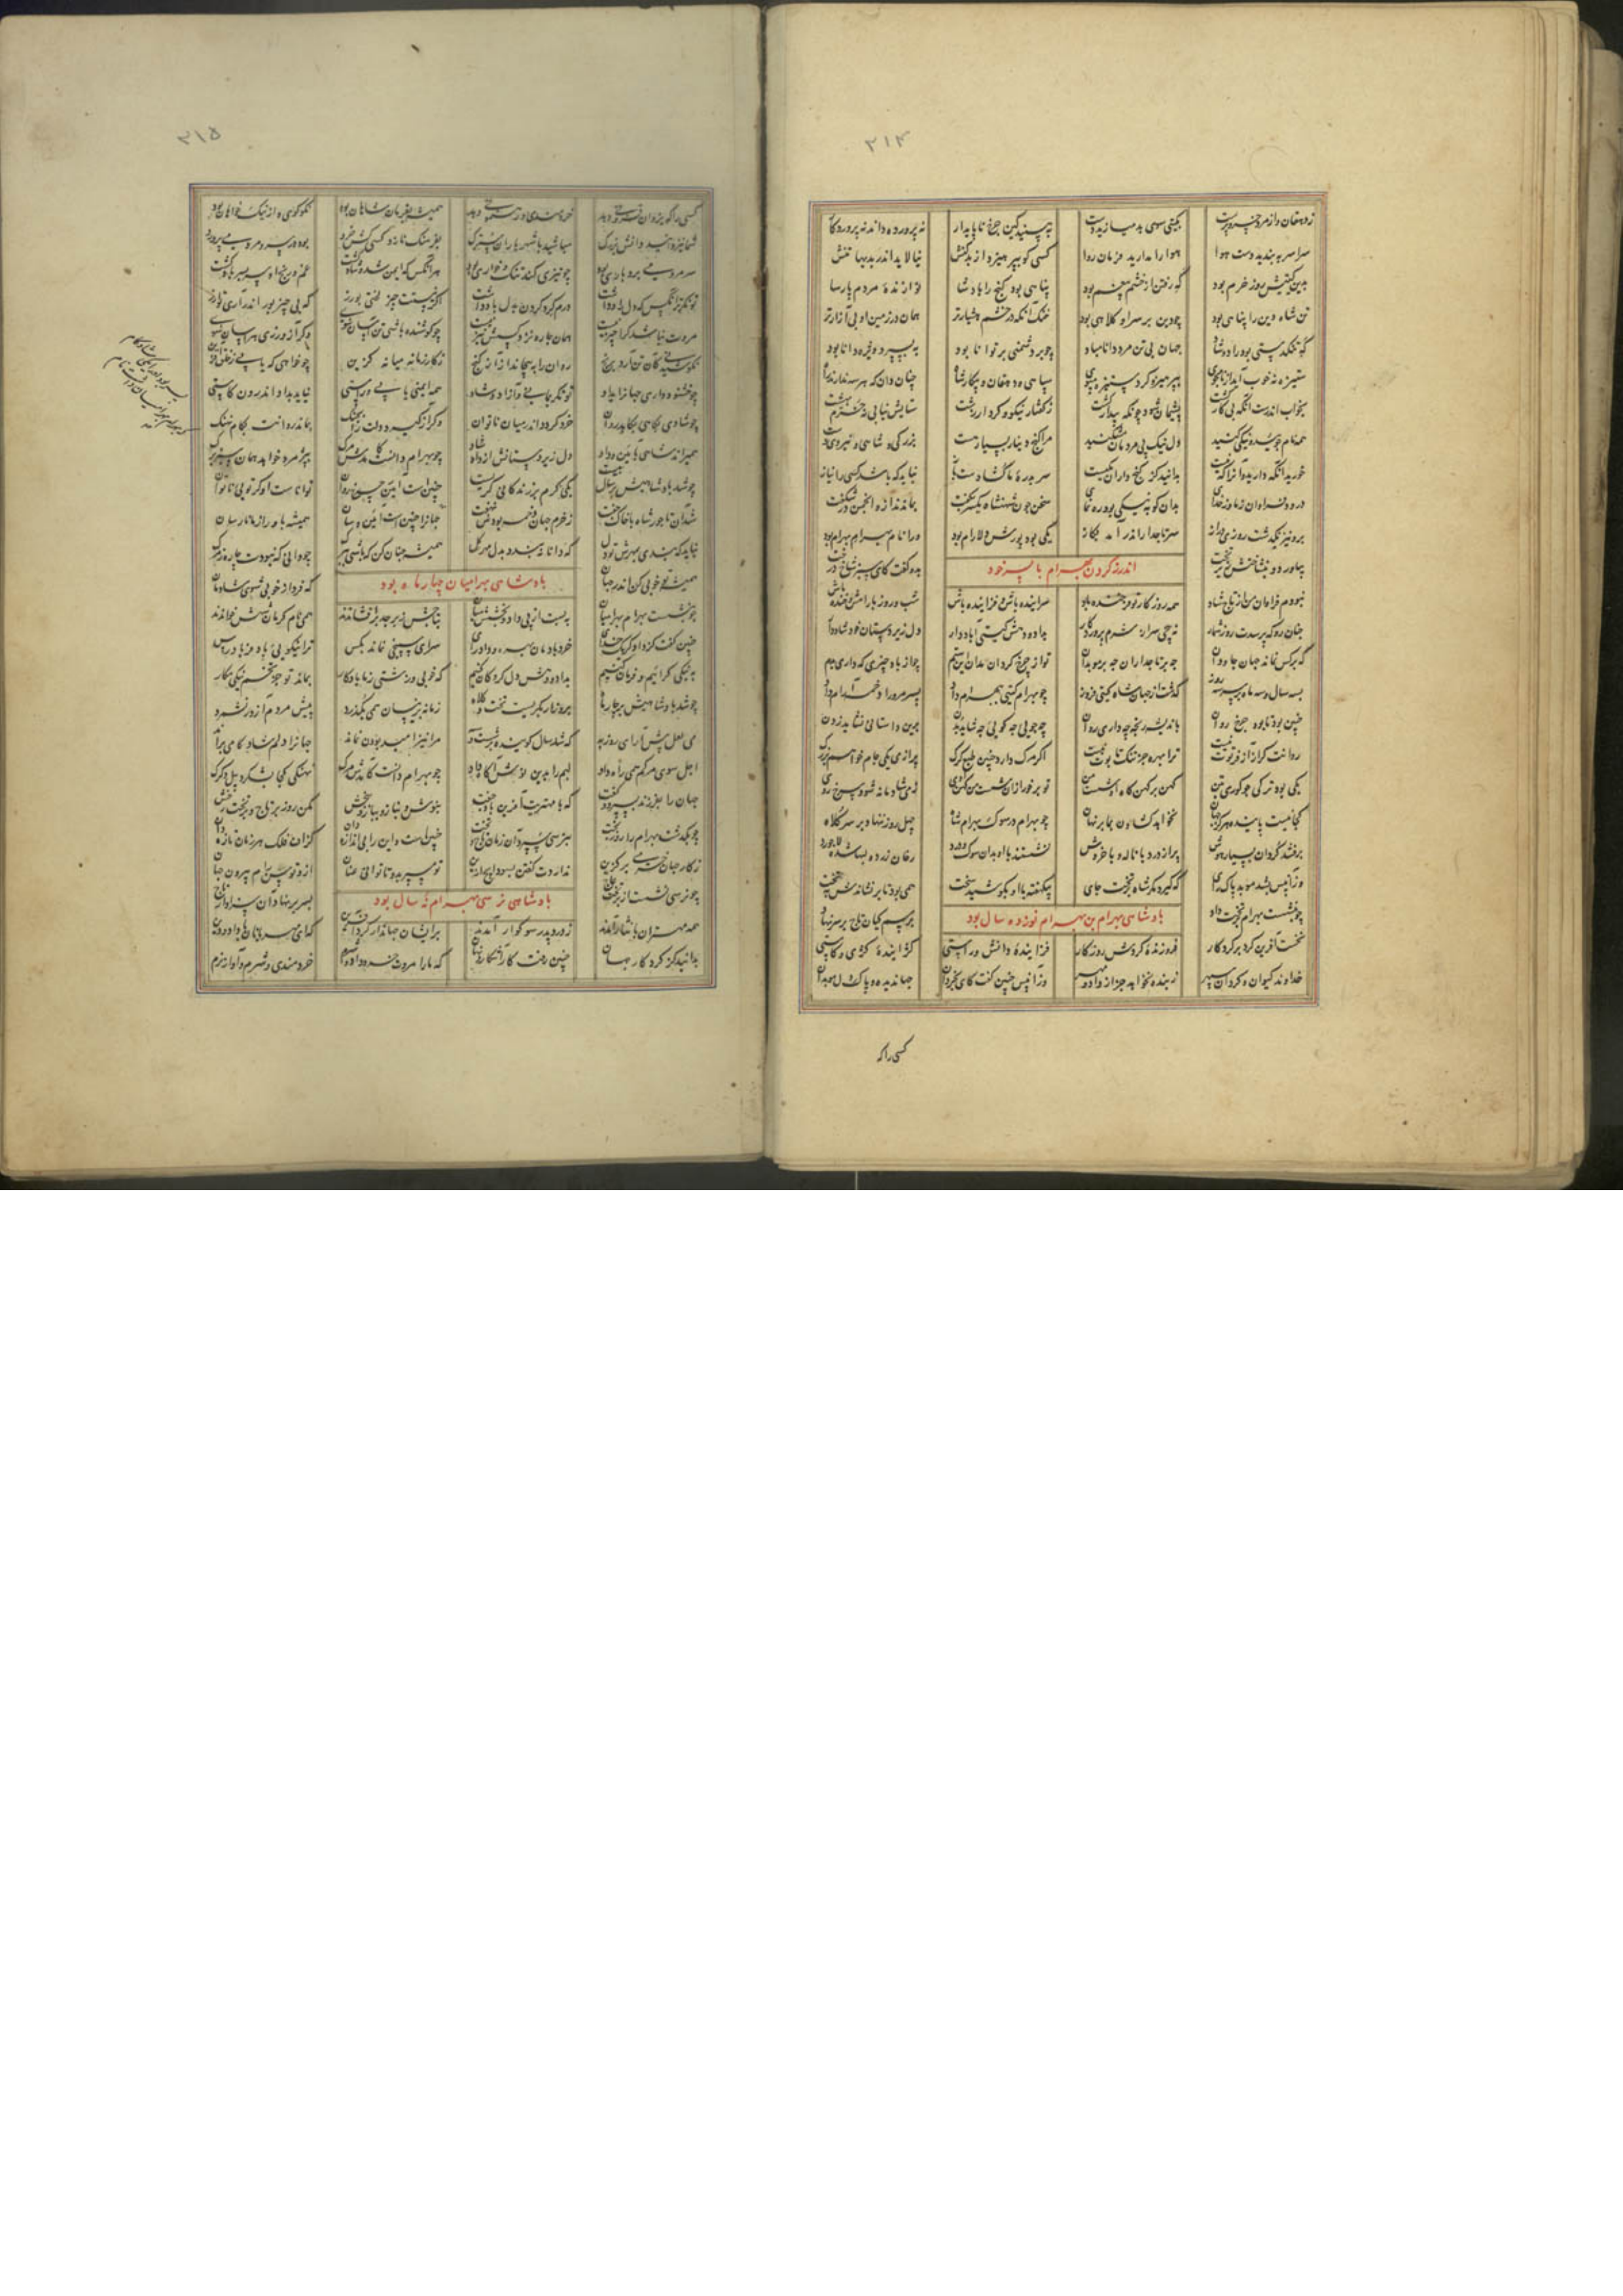 ۳۱۴
ز دهقان و از مرد خسروپرست بگیتی سوی بد میازید دست ببینید کین چرخ ناپایدار نه پرورده داند نه پروردگار
سراسر ببندید دست هوا هوا را مدارید فرمان روا کسی کو بپرهیزد از بدکنش نیالاید اندر بدیها تنش
بدین گیتیش روز خرم بود گه رفتن از پناهی بود گنج را پادشا نوازندهٔ مردم پارسا
تن شاه دین را پناهی بود چو دین بر سر او کلاهی بود خنک آنکه در خشم هشیارتر همان در زمین او بی آزارتر
گه تنگدستی بود راد و شاد جهان بی تن مرد دانا مباد چو بر دشمنی بر توانا بود به پی بسپرد ویژه دانا بود
ستیزه نه خوب آید از نامجوی بپرهیز و گرد ستیزه مپوی سپاهی و دهقان و بیکار شاه چنان دان که هر سه ندارند راه
بخواب اندرست آنکه بی کار گشت پشیمان شود چونکه بیدار گشت ز گفتار نیکو و کردار زشت ستایش نیابی نه خرم بهشت
همه نام جویید و نیکی کنید دل نیک پی مردمان مشکنید مرا گنج و دینار بسیار هست بزرگی و شاهی و نیروی دست
خورید آنکه دارید و آنرا که نیست بدانید کز گنج دارا یکیست سر بدرهٔ ما گشادست باز نباید که باشد کسی را نیاز
درود فراوان ز ما بر خدای بدان کو به نیکی بود رهنمای سخن چون شهنشاه یکسر بگفت بماندند ازو انجمن در شگفت
برو نیز بگذشت روزی دراز سر تاجدار اندر آمد بگاز یکی بود پورش دلارام بود ورا نام بهرام بهرام بود
بیاورد و بنشاختش زیر تخت بدو گفت کای سبز شاخ درخت
اندرز کردن بهرام با پسر خود
نبودم فراوان من از تاج شاد همه روزگار تو فرخنده باد سراینده باش و فزاینده باش شب و روز با رامش و خنده باش
چنان رو که پرسدت روز شمار نپیچی سر از شرم پروردگار بداد و دهش گیتی آباد دار دل زیردستان خود شاد دار
که بر کس نماند جهان جاودان چه بر تاجداران چه بر موبدان تو از چرخ گردان مدان این ستم چو از باد چیزی که داری بدم
بسه سال و سه ماه و بر سر سه روز گذشت از جهان شاه گیتی فروز چو بهرام گیتی ببهرام داد پسر مر ورا دخمه آرام داد
چنین بود تا بود چرخ روان باندیشه رنجه چه داری روان چه جویی چه گویی چه شاید بدن برین داستانی نشاید زدن
روانت گر از آز فرتوت نیست ترا بهره جز تنگ تابوت نیست اگر مرگ دارد چنین طبع گرگ پر از می یکی جام خواهم بزرگ
یکی بود ترکی چو گوری بتن کهن بر کهن سرخ روی
نخواهد گشادن بما بر نهان چو بهرام در سوک بهرام شاه چهل روز ننهاد بر سر کلاه
برفتند گردان بسیار هوش پر از درد با ناله و با خروش نشستند با او بدان سوک و درد رخان زرد و لبها شده لاجورد
وزان پس بشد موبد پاک رای که گیرد مگر شاه بر تخت جای بیکهفته با او بکوشید سخت همی بود تا بر نشاندش بتخت
چو بنشست بهرام بر تخت داد برسم کیان تاج بر سر نهاد
پادشاهی بهرام بن بهرام نوزده سال بود
نخست آفرین کرد بر کردگار فروزندهٔ گردش روزگار فزایندهٔ دانش و راستی گزایندهٔ کژی و کاستی
خداوند کیوان و گردان سپهر ز بنده نخواهد جز از داد و مهر وزان پس چنین گفت کای بخردان جهاندیده و پاک دل موبدان
کسی را که
۳۱۵
کسی را کو یزدان فزونی دهد خردمندی و رهنمونی دهد همیشه بفرمان شاهان بود نکوگوی و از نیک خواهان بود
شما نیز هر چند دانش بزرگ مباشید با شهریاران سترگ بفرهنگ نازد کسی کش خرد بود در سر و مردمی پرورد
سر مردمی بردباری بود چو تیزی کند تن بخواری بود هر آنکس که ایمن شد و شاد گشت غم و رنج
توانگرتر آنکس که دل راد داشت درم گرد کردن بدل باد داشت اگر نیستت چیز لختی بورز که بی چیز
مروت نیابد کرا چیز نیست همان جاه نزد کسش نیز نیست تن آسان شوی وگر آز ورزی هراسان شوی
کان تن آرد برنج روان را بپیچاند از آز گنج ز کار زمانه میانه گزین چو خواهی که یابی ز خلق آفرین
چو خشنود داری جهان را بداد توانگر بمانی و آزاد و شاد همه ایمنی باید و راستی نباید بداد اندرون کاستی
چو شادی بکاهی بکاهد روان خرد گردد اندر میان ناتوان بماند روانت بکام نهنگ
همیراند شاهی بآیین و داد دل زیردستانش ازو شاد چو بهرام دانست کامدش مرگ
چو شد پادشاهیش بر سال بیست یکی کم برو زندگانی گریست چنین است آیین چرخ روان تواناست او گر تویی ناتوان
شد آن تاجور شاه با خاک جفت ز خرم جهان دخمه بودش نهفت جهان را چنین است آیین و سان همیشه به راز ما نارسان
نباید که بندی بمهرش تو دل که دانا نبندد بدل مهر گل همیشه چنان کن که باشی چو دانی که نبودت چاره ز مرگ
همیشه تو خوبی کن اندر جهان که فردا ز خوبی شوی شادمان
پادشاهی بهرامیان چهار ماه بود
چو بنشست بهرام بهرامیان ببست از پی داد و بخشش میان بتاجش زبرجد برافشاندند همی نام کرمان شهش خواندند
چنین گفت کز داور یک خدای خرد بادمان بهره و داد و رای سرای سپنجی نماند بکس ترا نیکویی باد فریادرس
به نیکی گراییم و فرمان کنیم بداد و دهش دل گروگان کنیم که خوبی و زشتی ز ما یادگار بماند تو جز تخم نیکی مکار
چو شد پادشاهیش بر چار ماه برو زار بگریست تخت و کلاه زمانه برینسان همی بگذرد پیش مردم آزور نشمرد
می لعل پیش آر ای روزبه که شد سال گوینده بر شست و سه مرا نیز امید بودن نماند جهان را دلم شاد کامی براند
اجل سوی مرگم همی راه داد لبم را بدین چو بهرام دانست کامدش مرگ نهنگی کجا بشکرد پیل و کرگ
جهان را بفرزند بسپرد و گفت که با مهتریت آفرین باد جفت بنوش و بناز و بیاز و ببخش مکن روز بر تاج و بر تخت رخش
چو برگشت بهرام را روز بخت بنرسی سپرد آن زمان تاج و تخت چنین است و این را بی اندازه دان گزاف فلک هر زمان تازه دان
ز کار جهان خرمی برگزین ندارد ت گفتن بسود ایچ ازین
چو نرسی نشست از بر تخت عاج بسر بر نهاد آن سزاوار تاج
پادشاهی نرسی بهرام نه سال بود
همه مهتران با نثار آمدند ز درد پدر سوگوار آمدند بر ایشان جهاندار کرد آفرین که ای مهربانان با داد و دین
بدانید کز کردگار جهان چنین رفت کار آشکار و نهان که ما را مروت خرد داد و خردمندی و شرم و آواز نرم